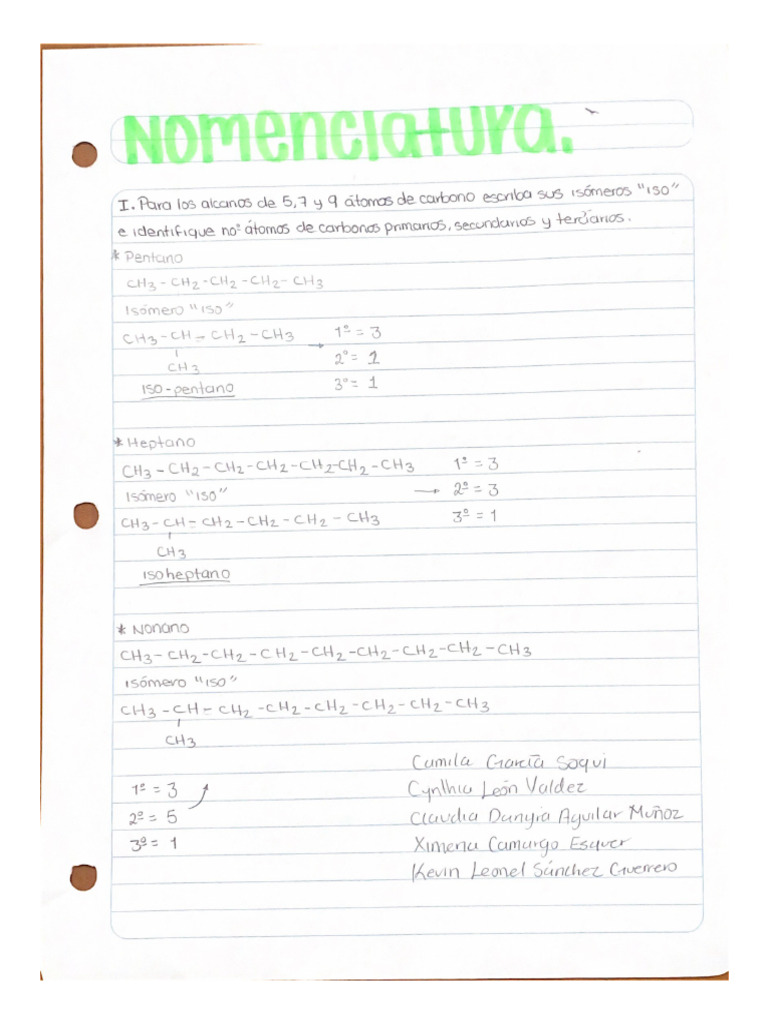 Nomenclatura.
I. Para los alcanos de 5,7 y 9 átomos de carbono escriba sus isómeros "iso"
e identifique noº átomos de carbonos primarios, secundarios y terciarios.
* Pentano
CH3-CH2-CH2-CH2-CH3
Isómero "iso"
CH3-CH-CH2-CH3 1º = 3
→ 2º = 1
CH3
iso-pentano 3º = 1
* Heptano
CH3-CH2-CH2-CH2-CH2-CH2-CH3 1º = 3
Isómero "iso" → 2º = 3
CH3-CH-CH2-CH2-CH2-CH3 3º = 1
CH3
isoheptano
* Nonano
CH3-CH2-CH2-CH2-CH2-CH2-CH2-CH2-CH3
isómero "iso"
CH3-CH-CH2-CH2-CH2-CH2-CH2-CH3
CH3
Camila García Soqui
1º = 3 Cynthia León Valdez
2º = 5 Claudia Danyra Aguilar Muñoz
3º = 1 Ximena Camargo Esquer
Kevin Leonel Sánchez Guerrero